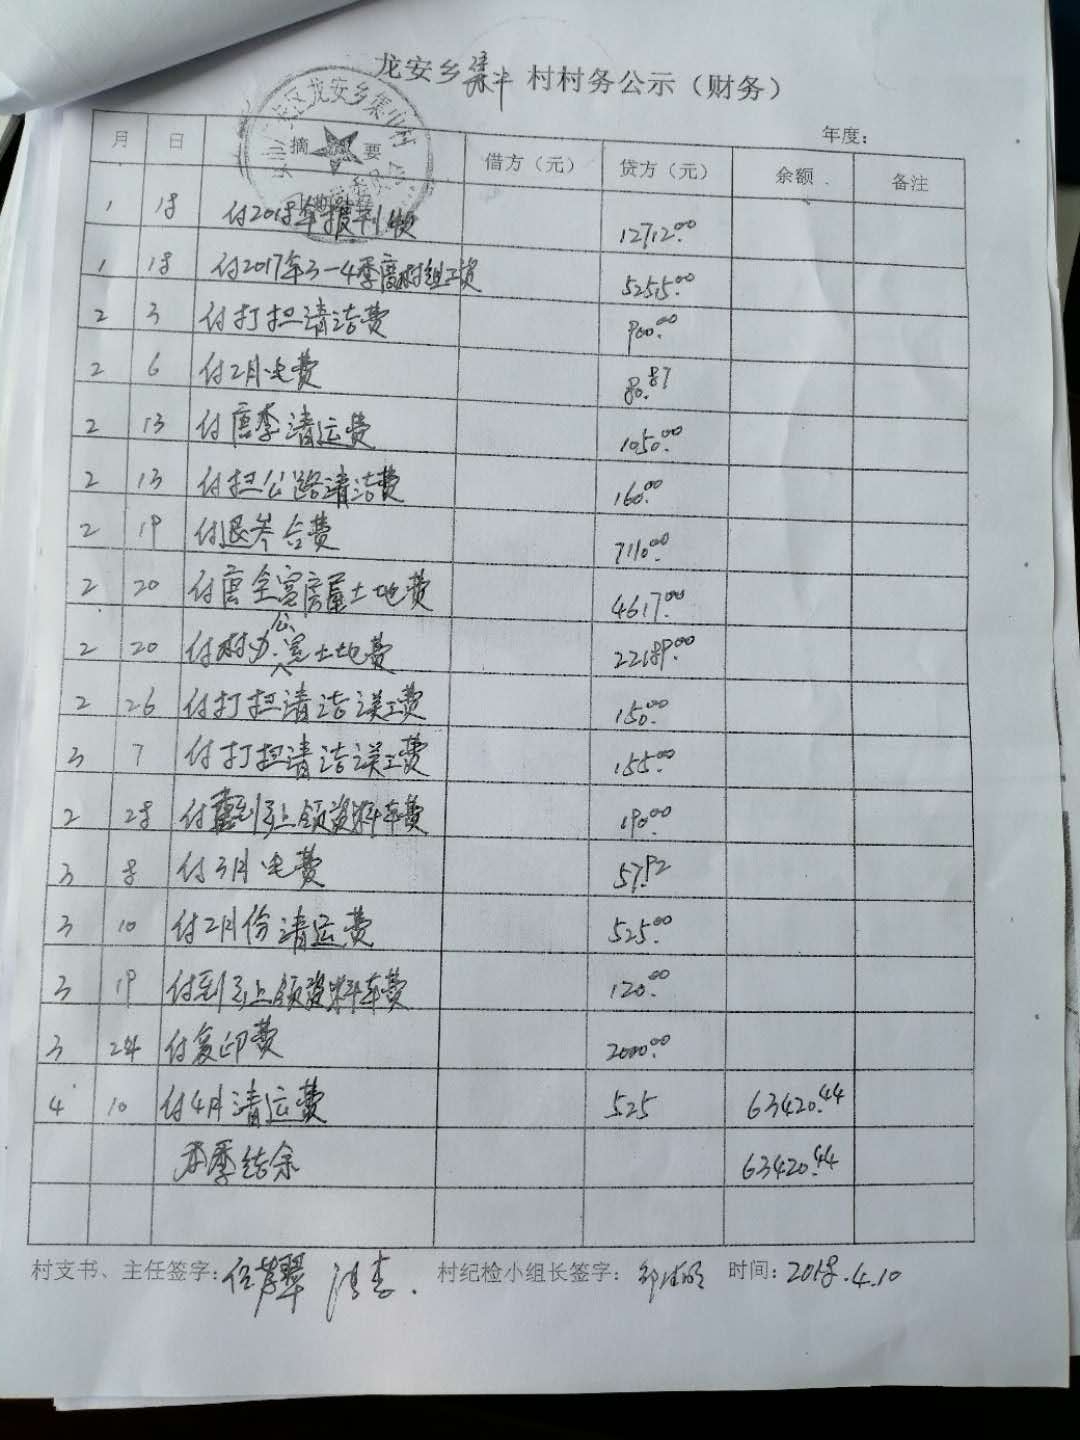 龙安乡集中村村务公示（财务）
年度：
月 日 摘要 借方（元） 贷方（元） 余额 备注
1 18 付2018年报刊费 12712.00
1 18 付2017年3-4季度村组工资 5255.00
2 3 付打扫清洁费 900.00
2 6 付2月电费 80.87
2 13 付 清运费 1050.00
2 13 付扫公路清洁费 160.00
2 19 付退 合费 7110.00
2 20 付唐全 房屋土地费 4617.00
2 20 付村办公室土地费 22189.00
2 26 付打扫清洁误工费 150.00
3 7 付打扫清洁误工费 155.00
2 28 付 到 上领资料车费 190.00
3 8 付3月电费 57.92
3 10 付2月份清运费 525.00
3 19 付到 上领资料车费 120.00
3 24 付复印费 2000.00
4 10 付4月清运费 525 63420.44
本季结余 63420.44
村支书、主任签字： 村纪检小组长签字： 时间：2018.4.10